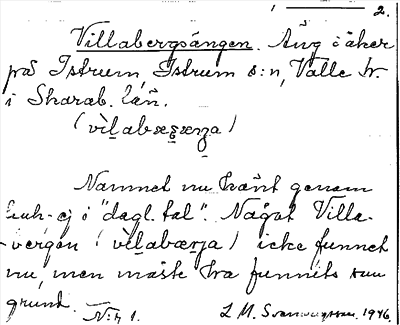 2.
Villabergsängen. Äng i åker
på Istrum, Istrum s:n, Valle hr
i Skarab. län.
(vìlabærsæŋa)
Namnet nu känt genom
ej i "dagl. tal". Något Villa-
bergen (vìlabærja) icke funnet
nu, men måste ha funnits som
grund.
N:r 1. L M. 1946.